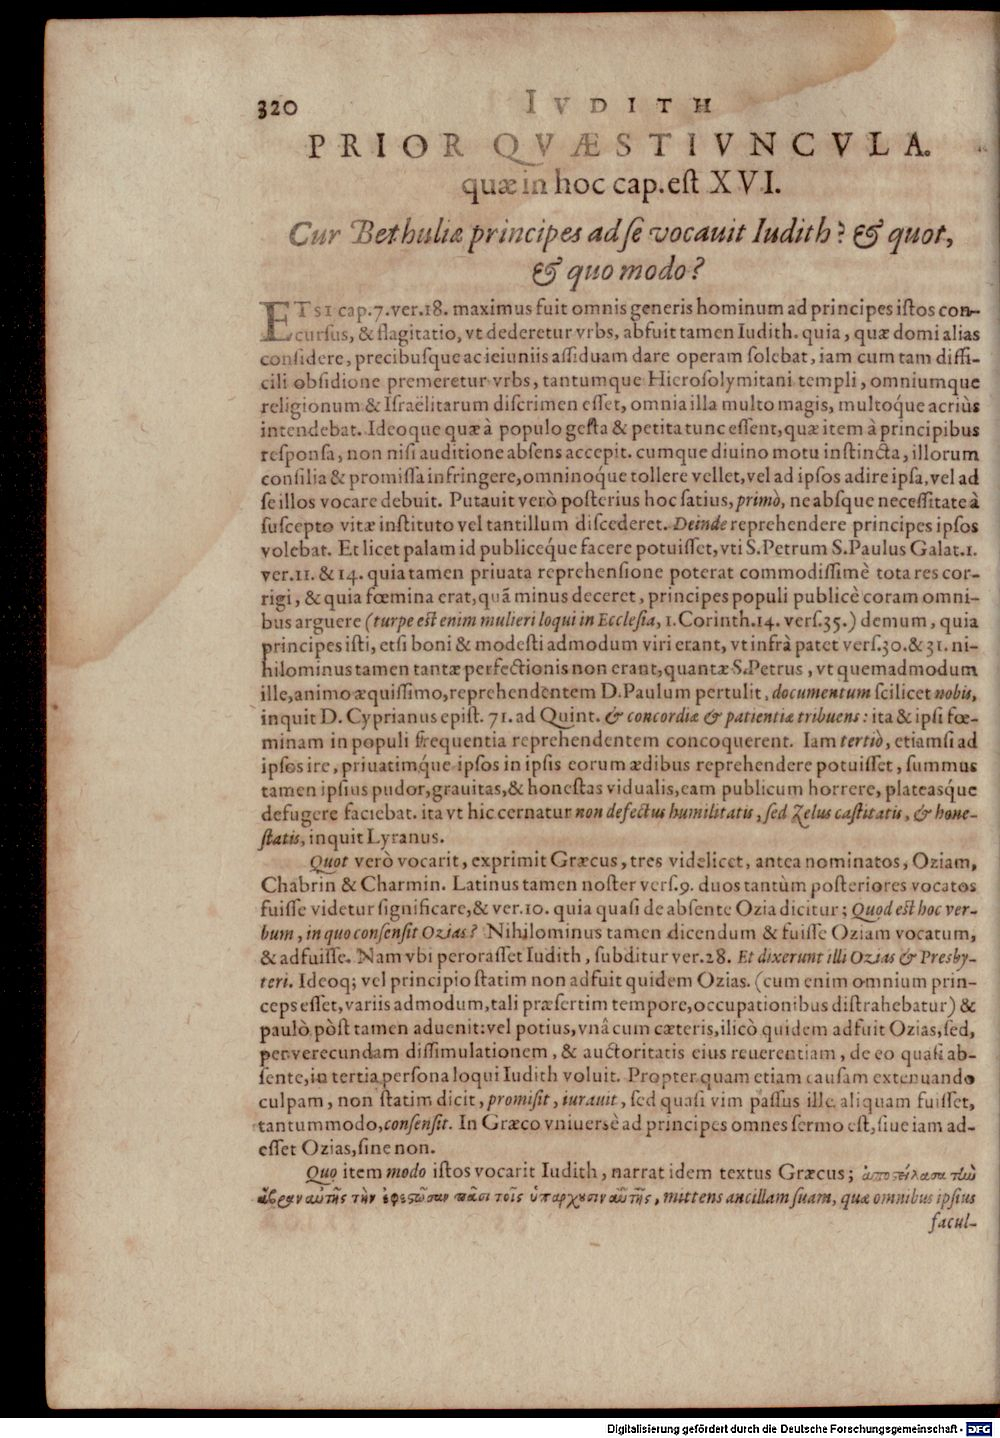 320 IVDITH
PRIOR QVÆSTIVNCVLA.
quæ in hoc cap. est XVI.
Cur Bethuliæ principes ad se vocauit Iudith? & quot,
& quo modo?
ETSI cap.7.ver.18. maximus fuit omnis generis hominum ad principes istos con-
cursus, & flagitatio, vt dederetur vrbs, abfuit tamen Iudith. quia, quæ domi alias
considere, precibusque ac ieiuniis assiduam dare operam solebat, iam cum tam diffi-
cili obsidione premeretur vrbs, tantumque Hierosolymitani templi, omniumque
religionum & Israëlitarum discrimen esset, omnia illa multo magis, multoq́ue acriùs
intendebat. Ideoque quæ à populo gesta & petita tunc essent, quæ item à principibus
responsa, non nisi auditione absens accepit. cumque diuino motu instincta, illorum
consilia & promissa infringere, omninoq́ue tollere vellet, vel ad ipsos adire ipsa, vel ad
se illos vocare debuit. Putauit verò posterius hoc satius, primò, ne absque necessitate à
suscepto vitæ instituto vel tantillum discederet. Deinde reprehendere principes ipsos
volebat. Et licet palam id publiceq́ue facere potuisset, vti S.Petrum S.Paulus Galat.1.
ver.11. & 14. quia tamen priuata reprehensione poterat commodissimè tota res cor-
rigi, & quia fœmina erat, quã minus deceret, principes populi publicè coram omni-
bus arguere (turpe est enim mulieri loqui in Ecclesia, 1.Corinth.14. vers.35.) demum, quia
principes isti, etsi boni & modesti admodum viri erant, vt infrà patet vers.30.& 31. ni-
hilominus tamen tantæ perfectionis non erant, quantæ S.Petrus, vt quemadmodum
ille, animo æquissimo, reprehendentem D.Paulum pertulit, documentum scilicet nobis,
inquit D. Cyprianus epist. 71. ad Quint. & concordiæ & patientiæ tribuens: ita & ipsi fœ-
minam in populi frequentia reprehendentem concoquerent. Iam tertiò, etiamsi ad
ipsos ire, priuatimq́ue ipsos in ipsis eorum ædibus reprehendere potuisset, summus
tamen ipsius pudor, grauitas, & honestas vidualis, eam publicum horrere, plateasq́ue
defugere faciebat. ita vt hic cernatur non defectus humilitatis, sed Zelus castitatis, & hone-
statis, inquit Lyranus.
Quot verò vocarit, exprimit Græcus, tres videlicet, antea nominatos, Oziam,
Chabrin & Charmin. Latinus tamen noster vers.9. duos tantùm posteriores vocatos
fuisse videtur significare, & ver.10. quia quasi de absente Ozia dicitur; Quod est hoc ver-
bum, in quo consensit Ozias? Nihilominus tamen dicendum & fuisse Oziam vocatum,
& adfuisse. Nam vbi perorasset Iudith, subditur ver.28. Et dixerunt illi Ozias & Presby-
teri. Ideoq; vel principio statim non adfuit quidem Ozias. (cum enim omnium prin-
ceps esset, variis admodum, tali præsertim tempore, occupationibus distrahebatur) &
paulò pòst tamen aduenit: vel potius, vnâ cum cæteris, ilicò quidem adfuit Ozias, sed,
per verecundam dissimulationem, & auctoritatis eius reuerentiam, de eo quasi ab-
sente, in tertia persona loqui Iudith voluit. Propter quam etiam causam extenuando
culpam, non statim dicit, promisit, iurauit, sed quasi vim passus ille aliquam fuisset,
tantummodo, consensit. In Græco vniuersè ad principes omnes sermo est, siue iam ad-
esset Ozias, sine non.
Quo item modo istos vocarit Iudith, narrat idem textus Græcus; ἀποστείλασα τὴν
ἅβραν αὐτῆς τὴν ἐφεστῶσαν πᾶσι τοῖς ὑπάρχουσιν αὐτῆς, mittens ancillam suam, quæ omnibus ipsius
facul-
Digitalisierung gefördert durch die Deutsche Forschungsgemeinschaft - DFG